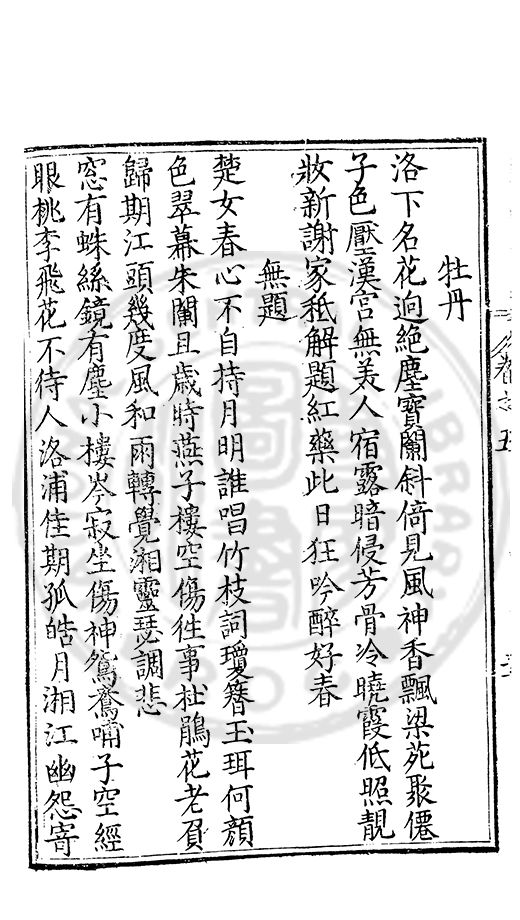 牡丹
洛下名花迥絕塵寶闌斜倚見風神香飄梁苑聚僊
子色壓漢宮無美人宿露暗侵芳骨冷曉霞低照靚
妝新謝家秪解題紅藥此日狂吟醉好春
無題
楚女春心不自持月明誰唱竹枝詞瓊簪玉珥何顏
色翠幕朱闌且歲時燕子樓空傷徃事杜鵑花老負
歸期江頭幾度風和雨轉覺湘靈瑟調悲
窓有蛛絲鏡有塵小樓岑寂坐傷神鴛鴦哺子空經
眼桃李飛花不待人洛浦佳期孤皓月湘江幽怨寄